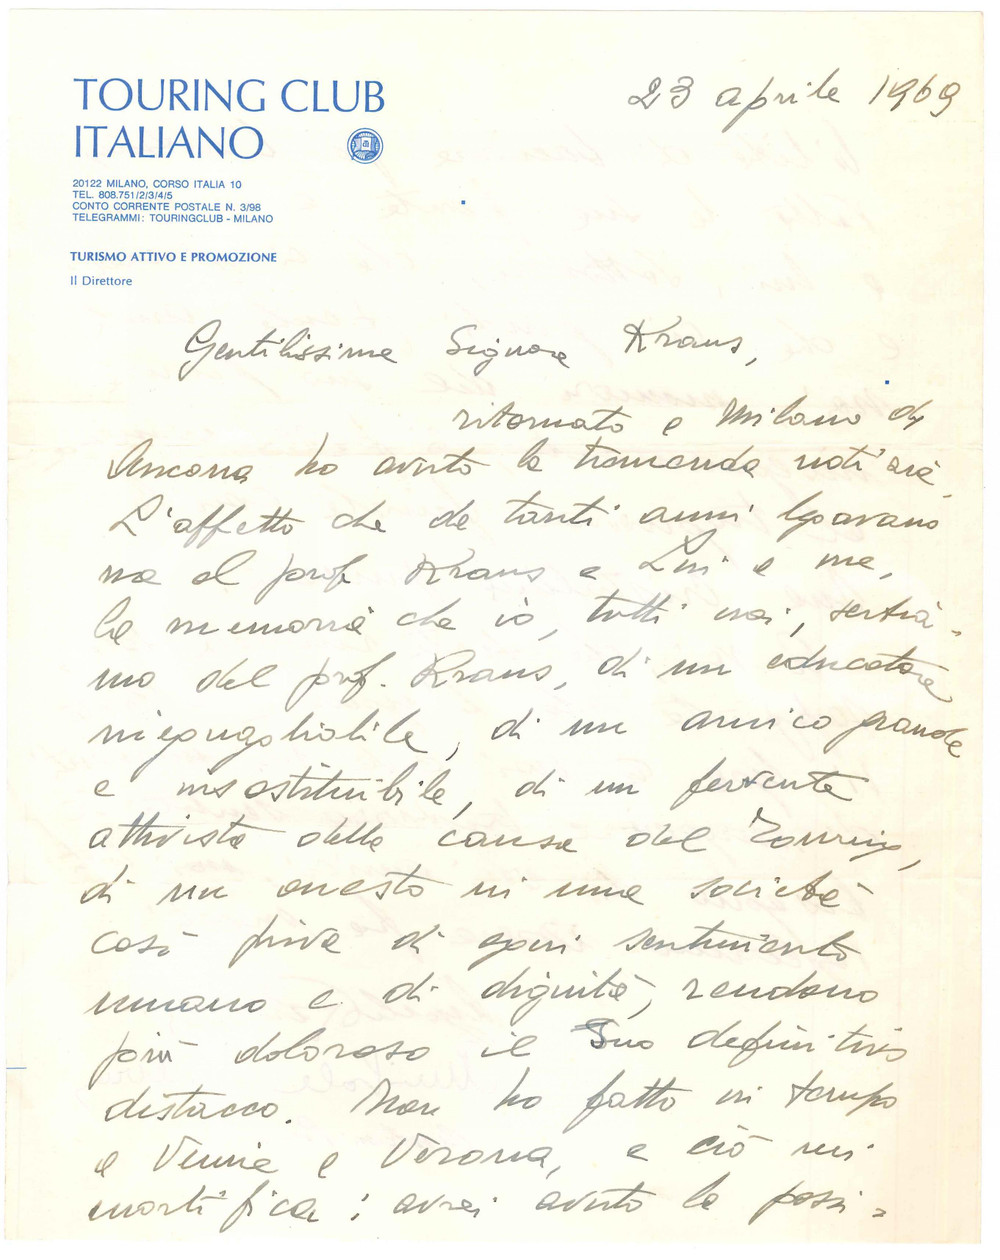 TOURING CLUB
ITALIANO
20122 MILANO, CORSO ITALIA 10
TEL. 808.751/2/3/4/5
CONTO CORRENTE POSTALE N. 3/98
TELEGRAMMI: TOURINGCLUB - MILANO
TURISMO ATTIVO E PROMOZIONE
Il Direttore
23 aprile 1969
Gentilissima Signora Kraus,
ritornato a Milano da
Ancona ho avuto la tremenda notizia.
L'affetto che da tanti anni legavano
me al prof Kraus e Lui a me,
la memoria che io, tutti noi, sentia-
mo del prof. Kraus, di un educatore
ineguagliabile, di un amico grande
e insostituibile, di un fervente
attivista della causa del Touring,
di un onesto in una società
così priva di ogni sentimento
umano e di dignità, rendono
più doloroso il Suo definitivo
distacco. Non ho fatto in tempo
a venire a Verona, e ciò mi
mortifica; avrei avuto la possi-